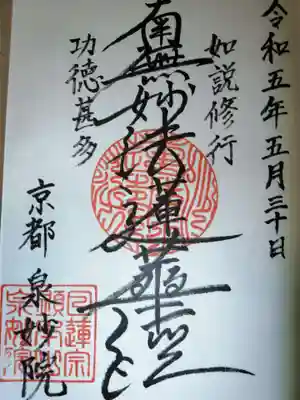 令和五年五月三十日
如説修行
南無妙法蓮華經
功徳甚多
京都 泉妙院
日蓮宗
泉妙院